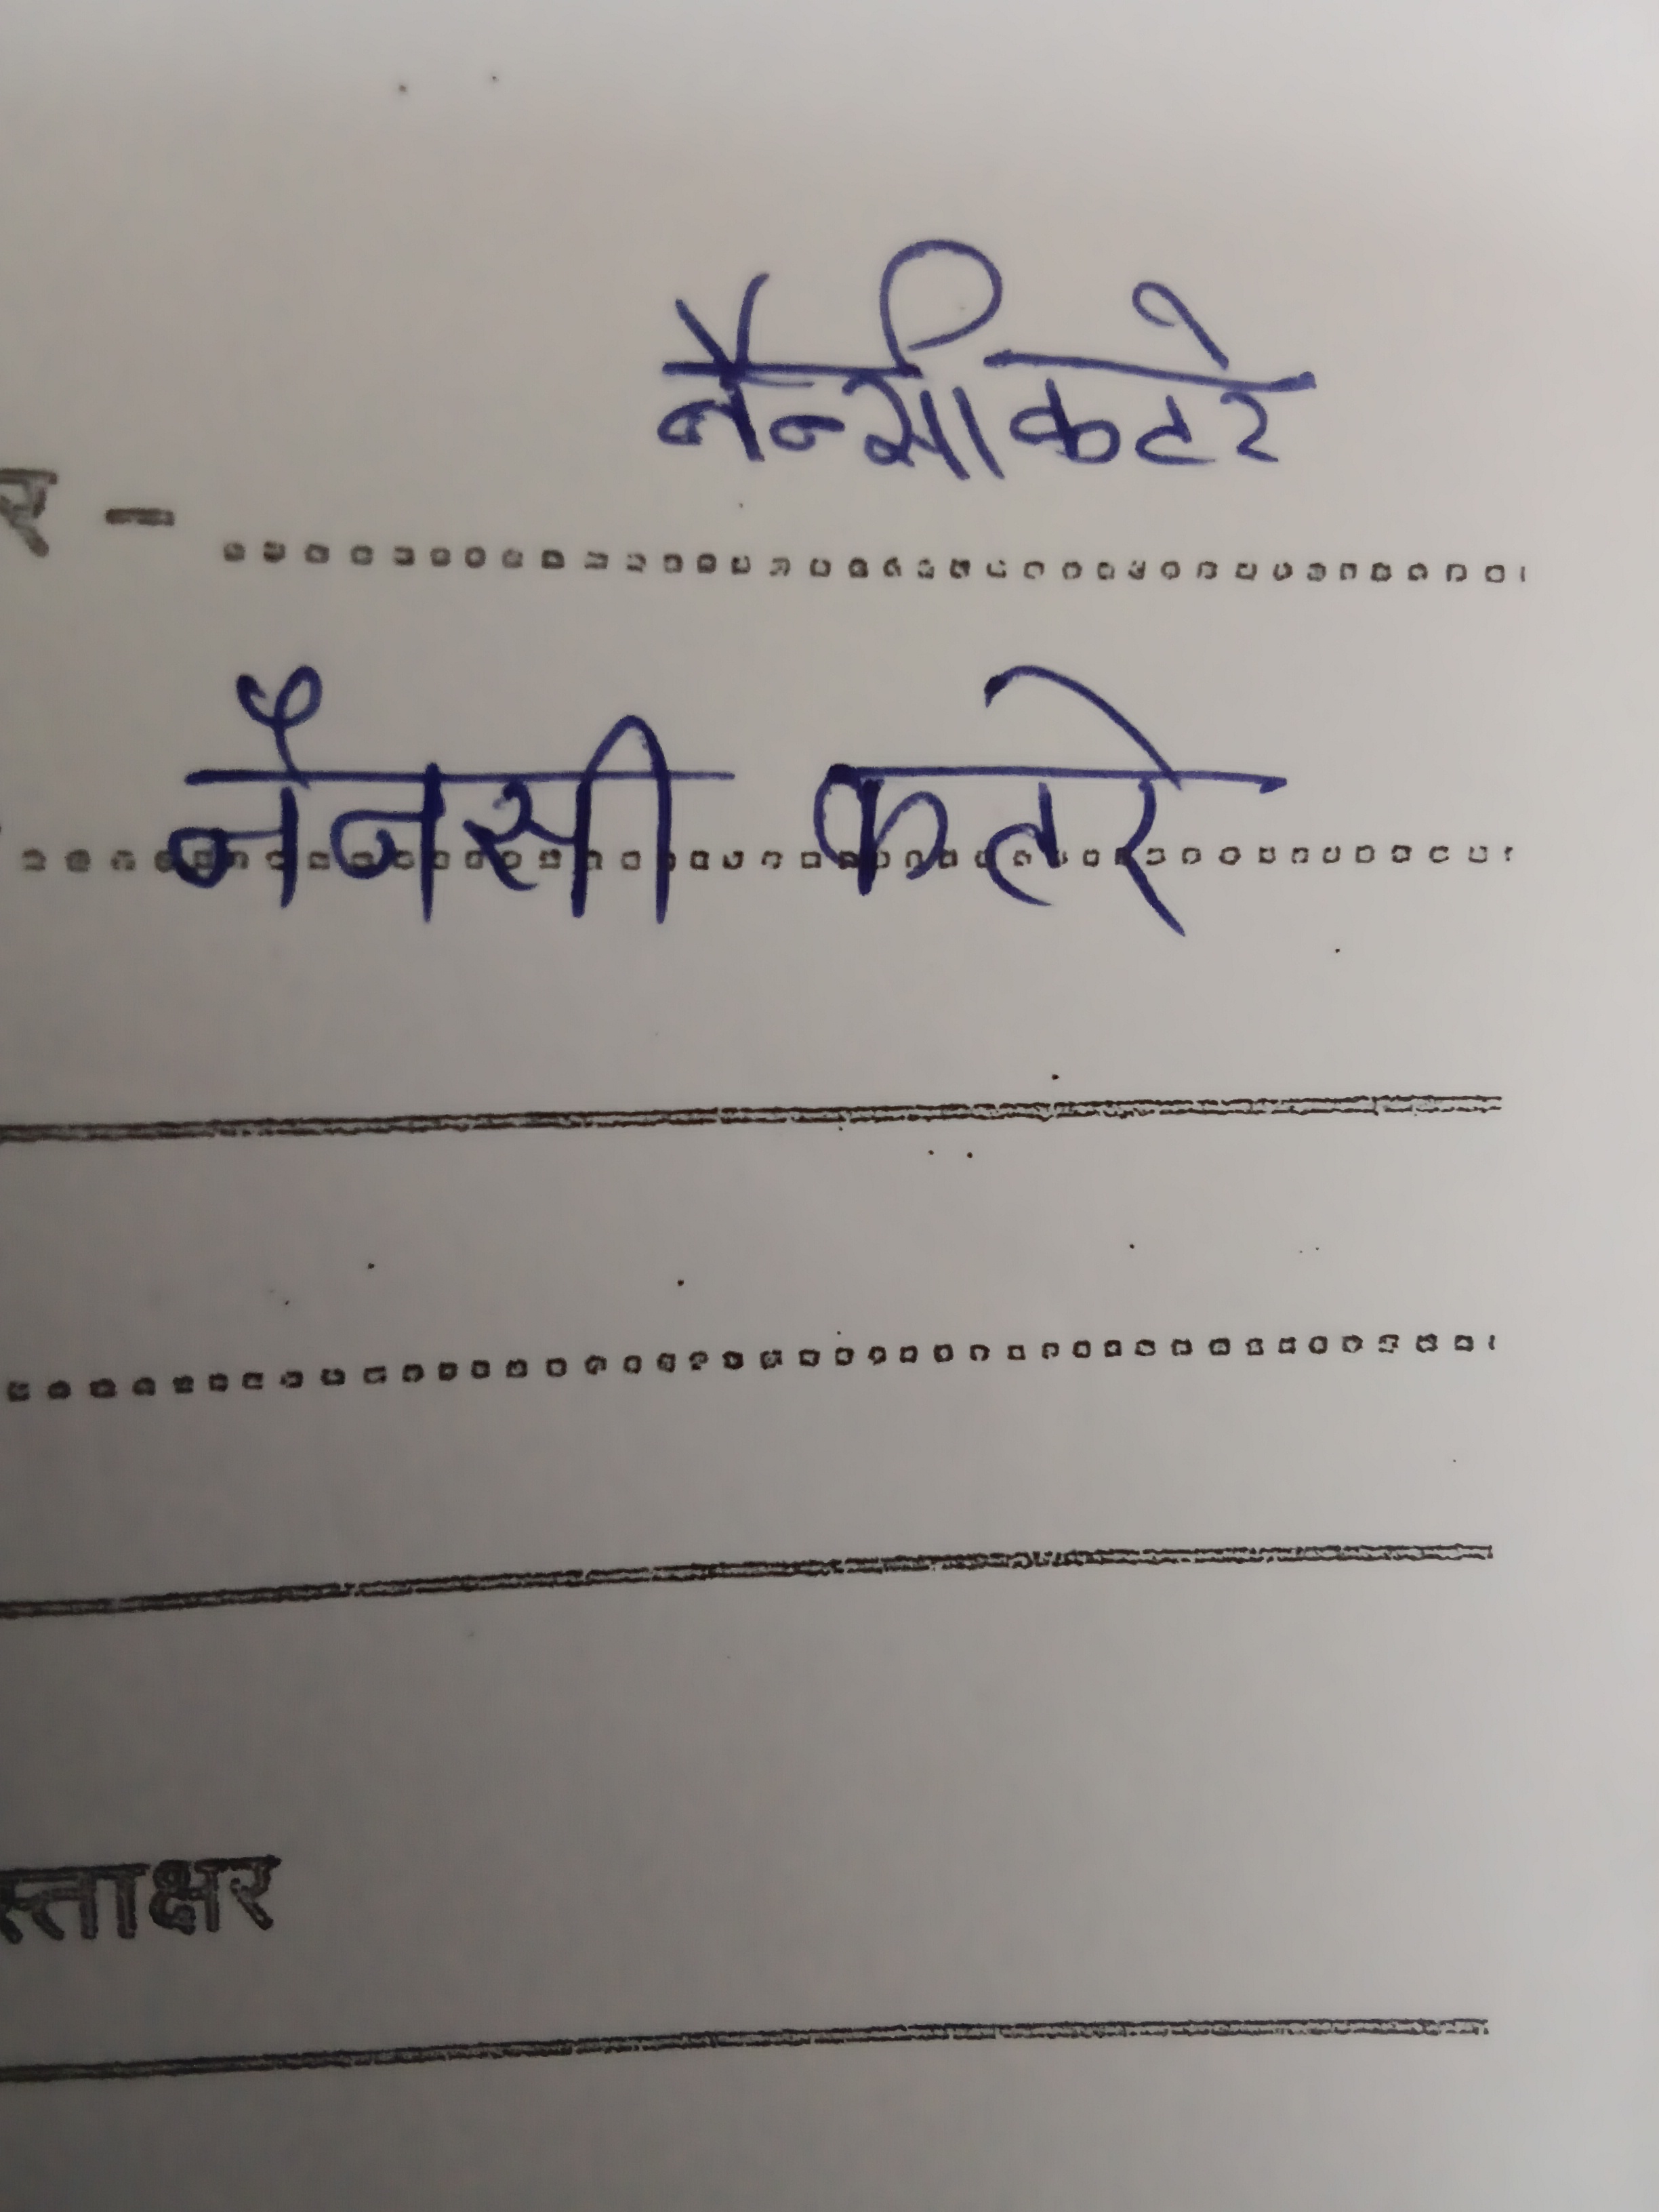 र – ....................................
नैन्सी कटरे
नैनसी कतरे
स्ताक्षर